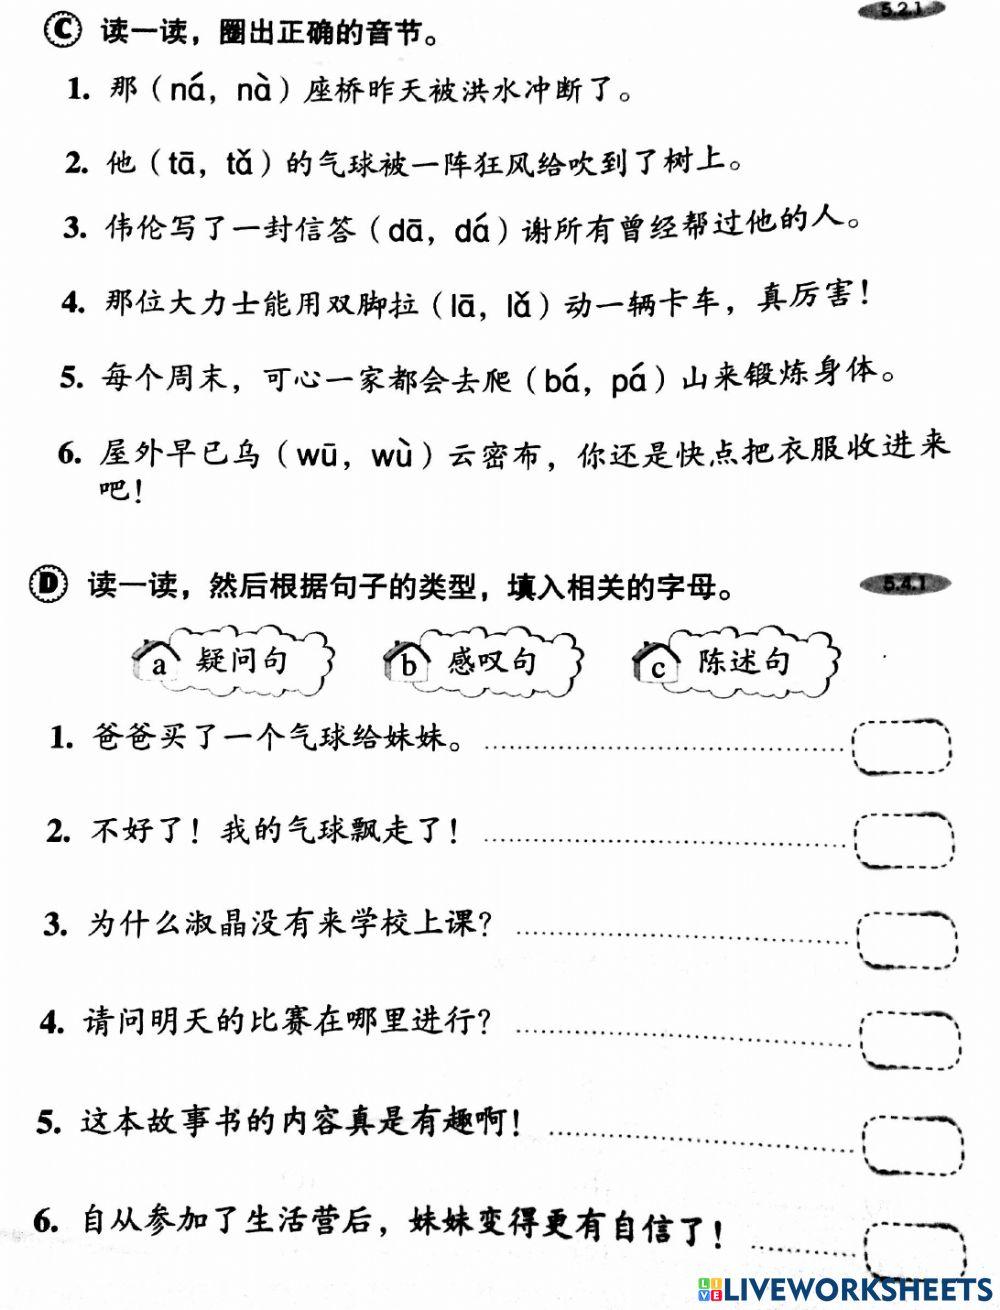 C 读一读，圈出正确的音节。
5.2.1
1. 那（ná，nà）座桥昨天被洪水冲断了。
2. 他（tā，tǎ）的气球被一阵狂风给吹到了树上。
3. 伟伦写了一封信答（dā，dá）谢所有曾经帮过他的人。
4. 那位大力士能用双脚拉（lā，lǎ）动一辆卡车，真厉害！
5. 每个周末，可心一家都会去爬（bá，pá）山来锻炼身体。
6. 屋外早已乌（wū，wù）云密布，你还是快点把衣服收进来
吧！
D 读一读，然后根据句子的类型，填入相关的字母。
5.4.1
a 疑问句 b 感叹句 c 陈述句
1. 爸爸买了一个气球给妹妹。
2. 不好了！我的气球飘走了！
3. 为什么淑晶没有来学校上课？
4. 请问明天的比赛在哪里进行？
5. 这本故事书的内容真是有趣啊！
6. 自从参加了生活营后，妹妹变得更有自信了！
LIVE LIVEWORKSHEETS